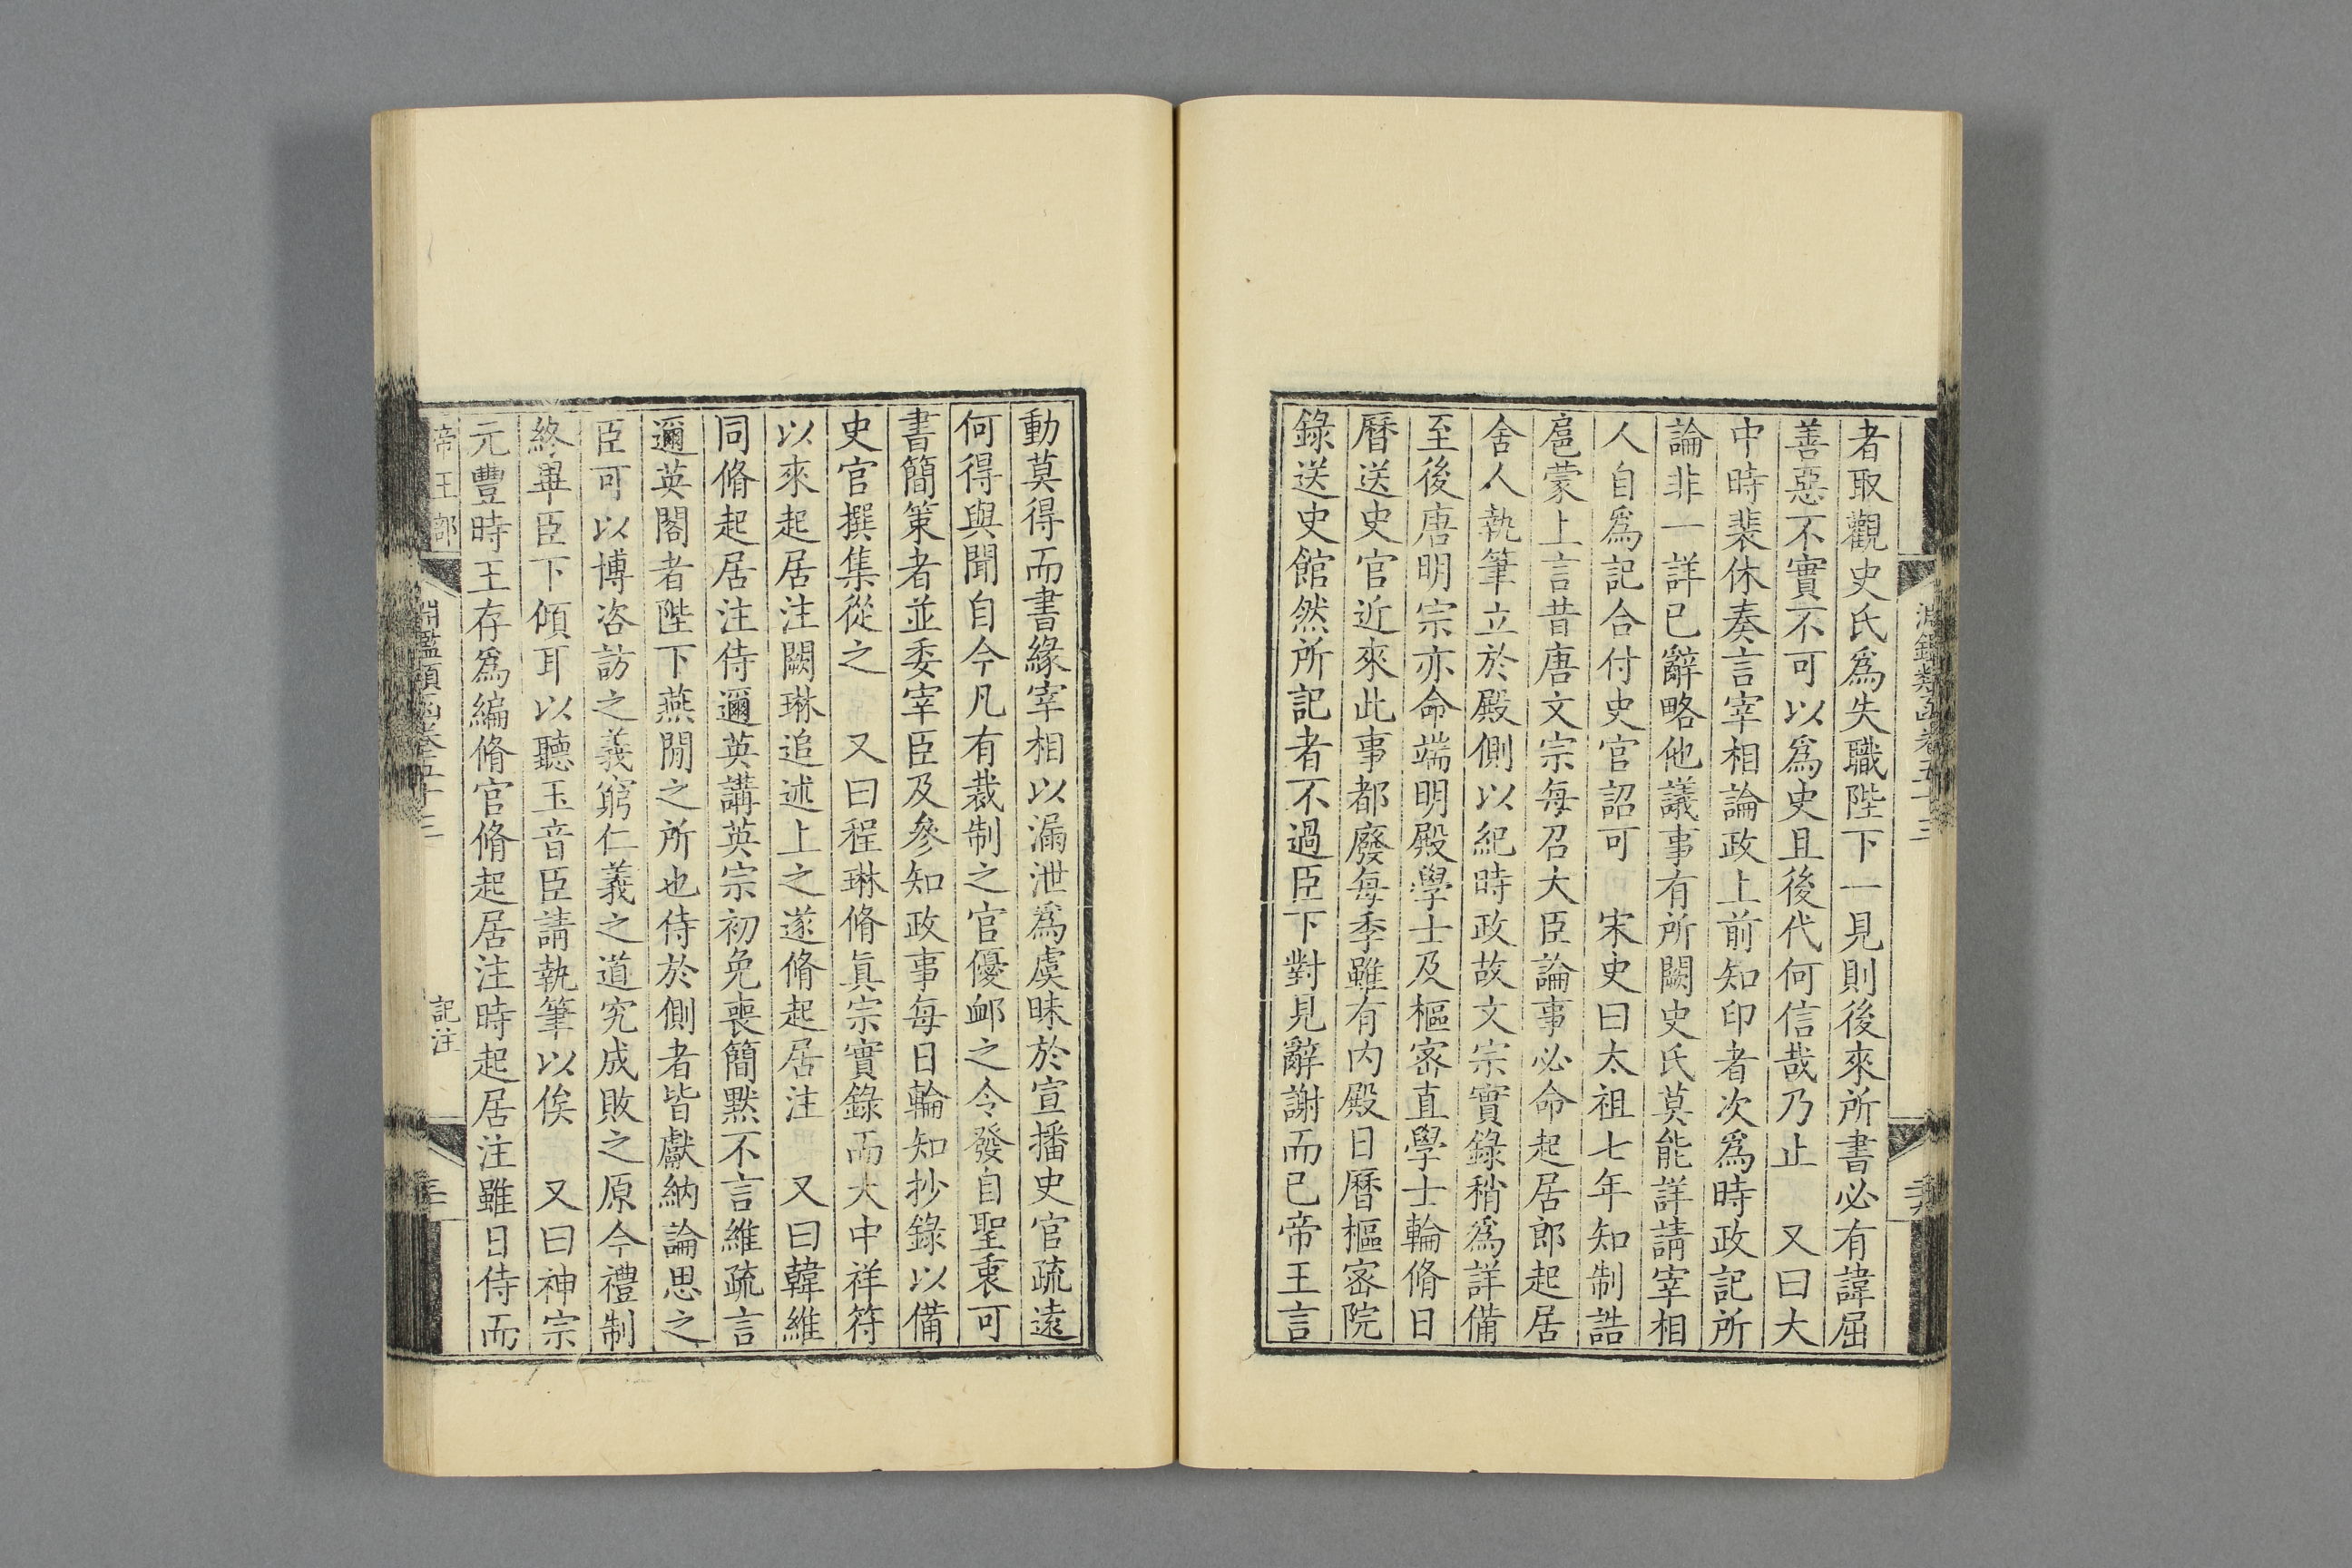 淵鑑類函卷五十三
者取觀史氏爲失職陛下一見則後來所書必有諱屈
善惡不實不可以爲史且後代何信哉乃止 又曰大
中時裴休奏言宰相論政上前知印者次爲時政記所
論非一詳己辭略他議事有所闕史氏莫能詳請宰相
人自爲記合付史官詔可 宋史曰太祖七年知制誥
扈蒙上言昔唐文宗每召大臣論事必命起居郎起居
舍人執筆立於殿側以紀時政故文宗實錄稍爲詳備
至後唐明宗亦命端明殿學士及樞密直學士輪脩日
曆送史官近來此事都廢每季雖有內殿日曆樞密院
錄送史館然所記者不過臣下對見辭謝而已帝王言
動莫得而書緣宰相以漏泄爲虞昧於宣播史官疏遠
何得與聞自今凡有裁制之官優邮之令發自聖衷可
書簡策者並委宰臣及參知政事每日輪知抄錄以備
史官撰集從之 又曰程琳脩眞宗實錄而大中祥符
以來起居注闕琳追述上之遂脩起居注 又曰韓維
同脩起居注侍邇英講英宗初免喪簡默不言維疏言
邇英閣者陛下燕閒之所也侍於側者皆獻納論思之
臣可以博咨訪之義窮仁義之道究成敗之原今禮制
終畢臣下傾耳以聽玉音臣請執筆以俟 又曰神宗
元豐時王存爲編脩官脩起居注時起居注雖日侍而
帝王部 淵鑑類函卷五十三 記注 三